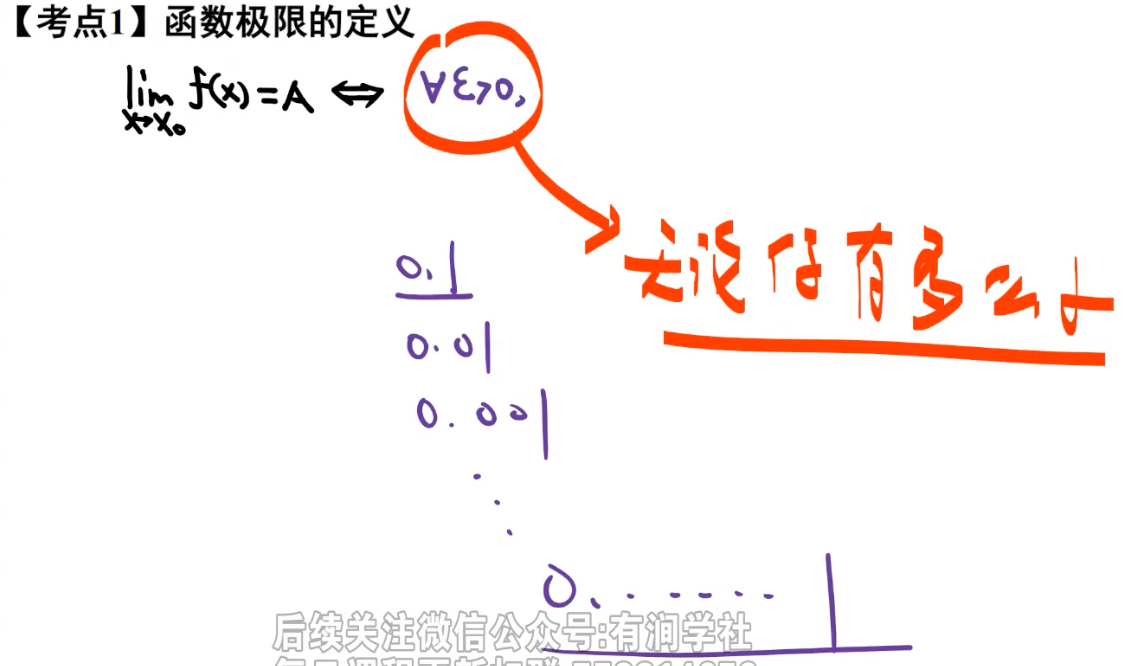 【考点1】函数极限的定义
lim f(x) = A ⇔ ∀ε>0,
x→x₀
无论你有多么小
0.1
0.01
0.001
⋱
0.······1
后续关注微信公众号:有涧学社